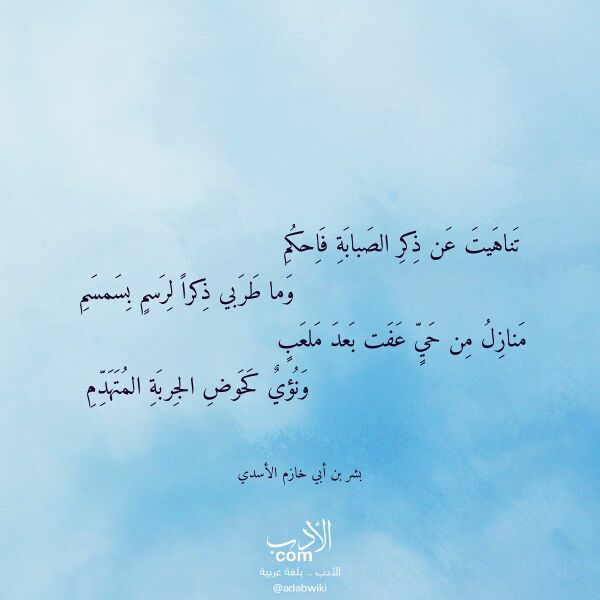 تَناهَيتَ عَن ذِكرِ الصَبابَةِ فَاِحكُمِ
وَما طَرَبي ذِكراً لِرَسمٍ بِسَمسَمِ
مَنازِلُ مِن حَيٍّ عَفَت بَعدَ مَلعَبٍ
وَنُؤيٌ كَحَوضِ الجِربَةِ المُتَهَدِّمِ
بشر بن أبي خازم الأسدي
الأدب
com
الأدب .. بلغة عربية
@adabwiki